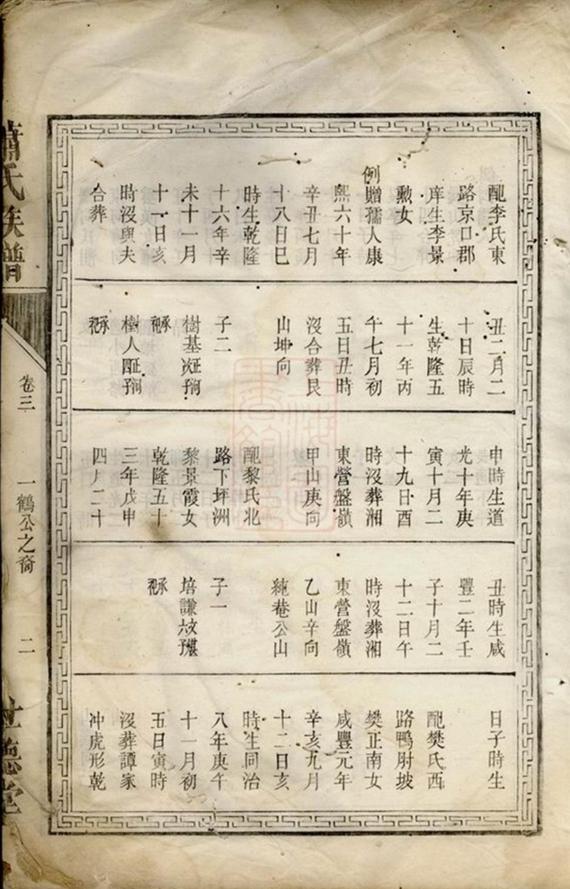 配李氏東
路京口郡
庠生李景
勲女
例贈孺人康
熙六十年
辛丑七月
十八日巳
時生乾隆
十六年辛
未十一月
十一日亥
時沒與夫
合葬
丑二月二
十日辰時
生乾隆五
十一年丙
午七月初
五日丑時
沒合葬艮
山坤向
子二
樹基
樹人
申時生道
光十年庚
寅十月二
十九日酉
時沒葬湘
東營盤嶺
甲山庚向
配黎氏北
路下坪洲
黎景霞女
乾隆五十
三年戊申
四月二十
丑時生咸
豐二年壬
子十月二
十二日午
時沒葬湘
東營盤嶺
乙山辛向
純菴公山
子一
培謙
日子時生
配樊氏西
路鴨尉坡
樊正南女
咸豐元年
辛亥九月
十二日亥
時生同治
八年庚午
十一月初
五日寅時
沒葬譚家
沖虎形乾
蕭氏族譜
卷三
一鶴公之裔
二